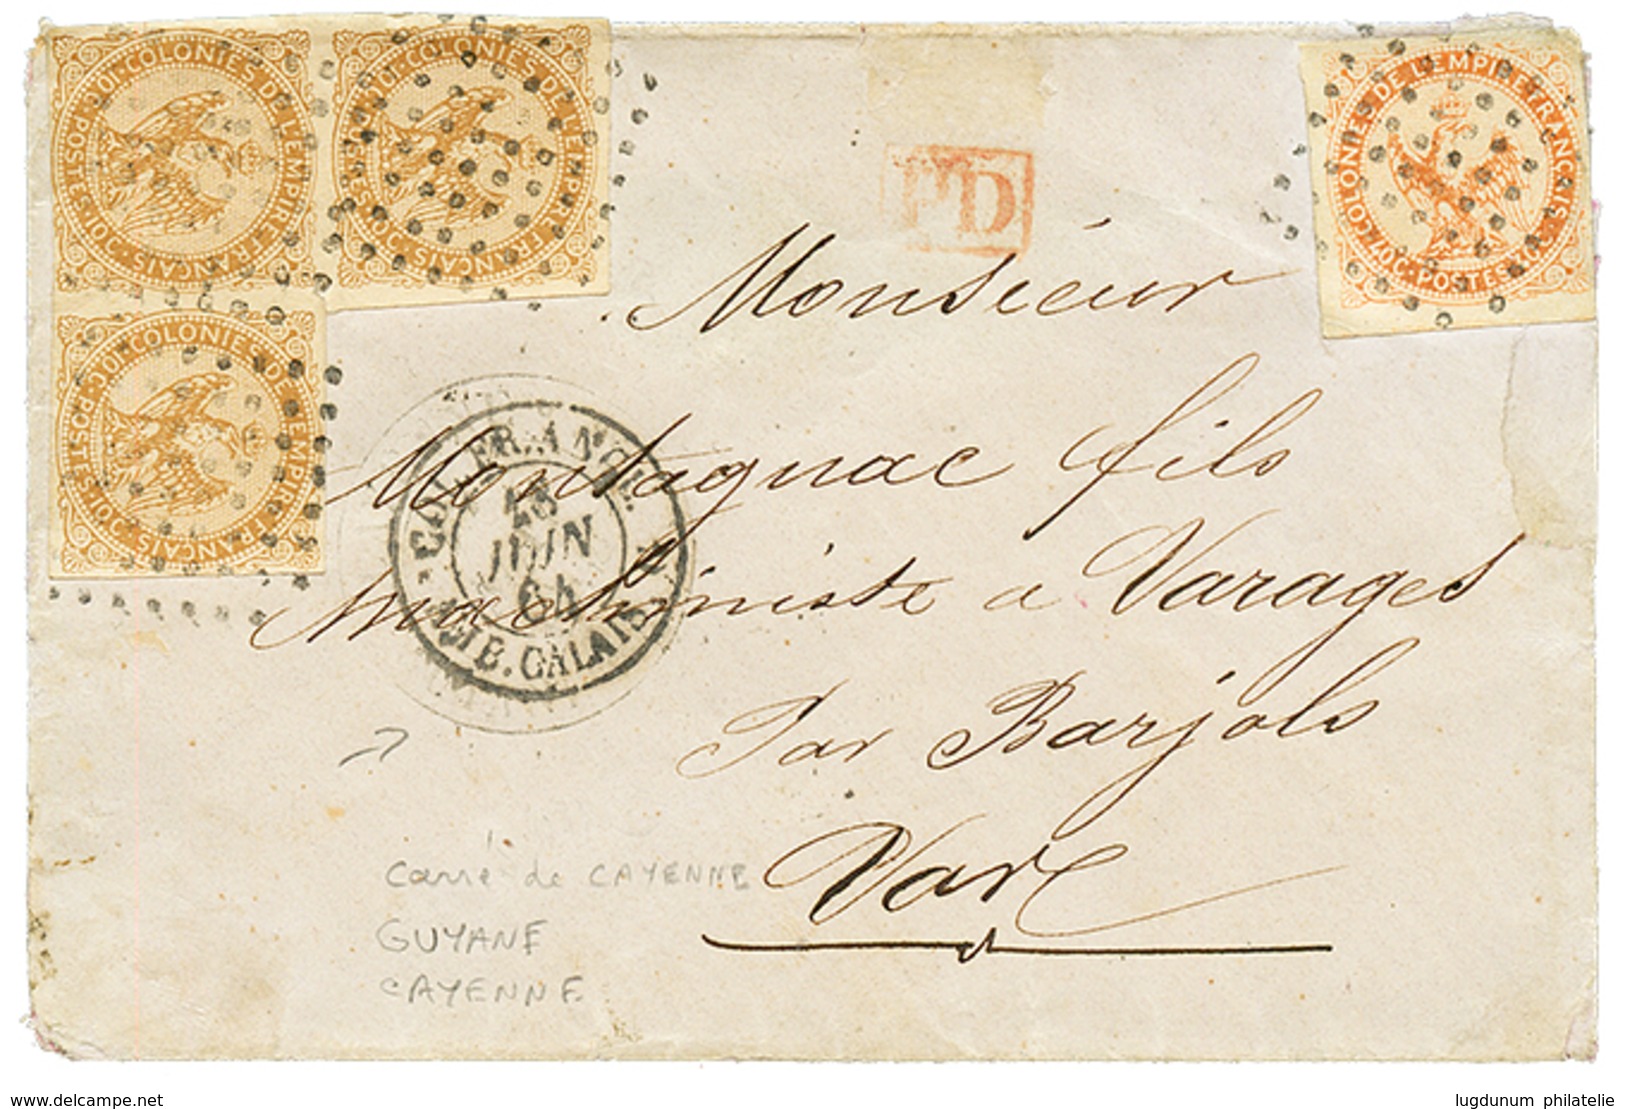 10C·COLONIES DE L'EMPIRE FRANÇAIS·10C·POSTES·
10C·COLONIES DE L'EMPIRE FRANÇAIS·10C·POSTES
40C·COLONIES DE L'EMPIRE FRANÇAIS·40C·POSTES
10C·COLONIES DE L'EMPIRE FRANÇAIS·10C·POSTES·
PD
Monsieur
Montagnac fils
Machiniste a Varages
Par Barjols
Var
COL. FR. ANGL.
JUIN
64
AMB. CALAIS
carré de CAYENNE
GUYANE
CAYENNE
www.delcampe.net
lugdunum philatelie